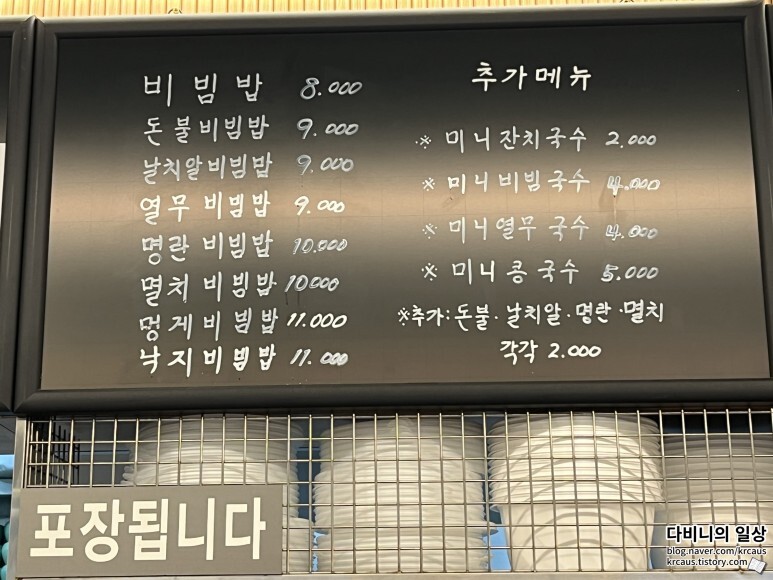 비빔밥 8.000
돈불비빔밥 9.000
날치알비빔밥 9.000
열무 비빔밥 9.000
명란 비빔밥 10.000
멸치 비빔밥 10000
멍게비빔밥 11.000
낙지비빔밥 11.000
추가메뉴
※ 미니잔치국수 2.000
※ 미니비빔국수 4.000
※ 미니열무 국수 4.000
※ 미니 콩 국수 5.000
※추가: 돈불 · 날치알 · 명란 · 멸치
각각 2.000
포장됩니다
다비니의 일상
blog.naver.com/krcaus
krcaus.tistory.com